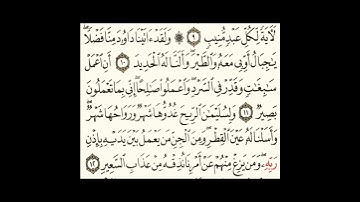 لَآيَةً لِّكُلِّ عَبْدٍ مُّنِيبٍ ٩ ۞ وَلَقَدْ ءَاتَيْنَا دَاوُۥدَ مِنَّا فَضْلًا ۖ
يَـٰجِبَالُ أَوِّبِى مَعَهُۥ وَٱلطَّيْرَ ۖ وَأَلَنَّا لَهُ ٱلْحَدِيدَ ١٠ أَنِ ٱعْمَلْ
سَـٰبِغَـٰتٍ وَقَدِّرْ فِى ٱلسَّرْدِ ۖ وَٱعْمَلُوا۟ صَـٰلِحًا ۖ إِنِّى بِمَا تَعْمَلُونَ
بَصِيرٌ ١١ وَلِسُلَيْمَـٰنَ ٱلرِّيحَ غُدُوُّهَا شَهْرٌ وَرَوَاحُهَا شَهْرٌ ۖ
وَأَسَلْنَا لَهُۥ عَيْنَ ٱلْقِطْرِ ۖ وَمِنَ ٱلْجِنِّ مَن يَعْمَلُ بَيْنَ يَدَيْهِ بِإِذْنِ
رَبِّهِۦ ۖ وَمَن يَزِغْ مِنْهُمْ عَنْ أَمْرِنَا نُذِقْهُ مِنْ عَذَابِ ٱلسَّعِيرِ ١٢